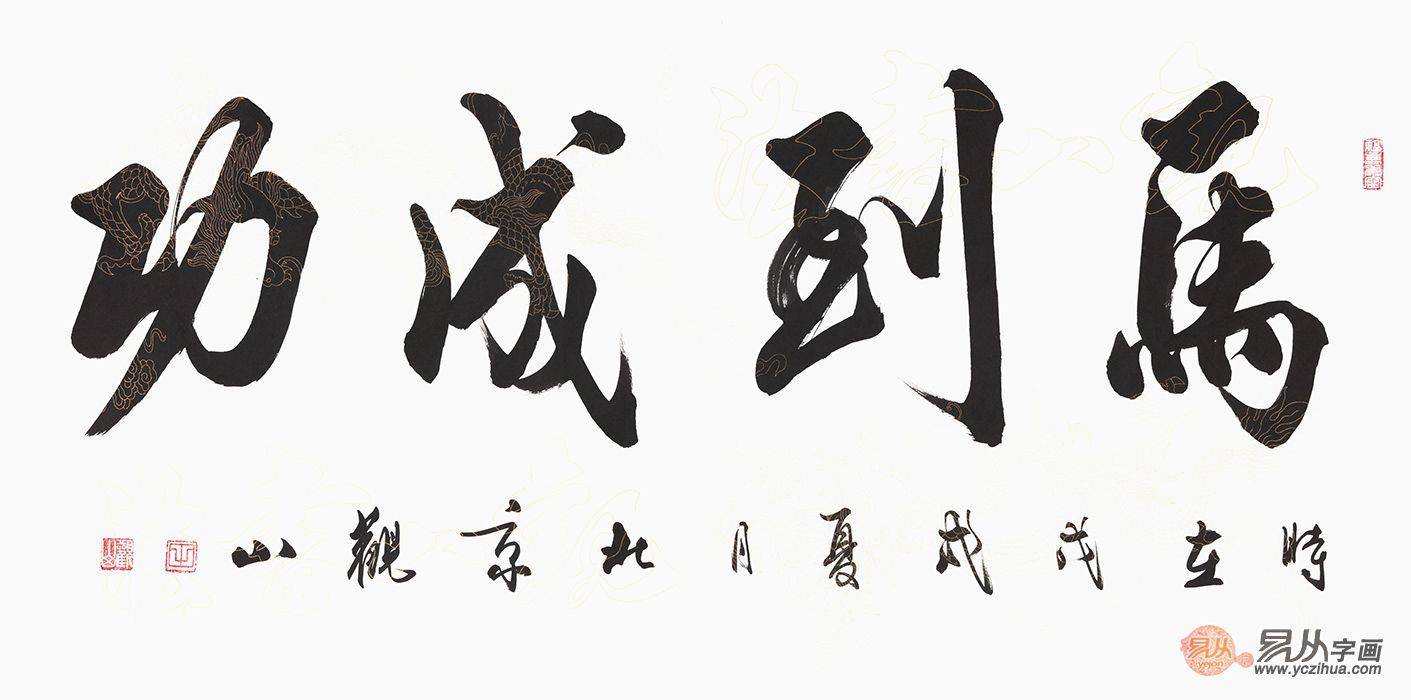 馬到成功
時在戊戌夏月北京觀山
易从
yejon
易从字画
www.yczihua.com